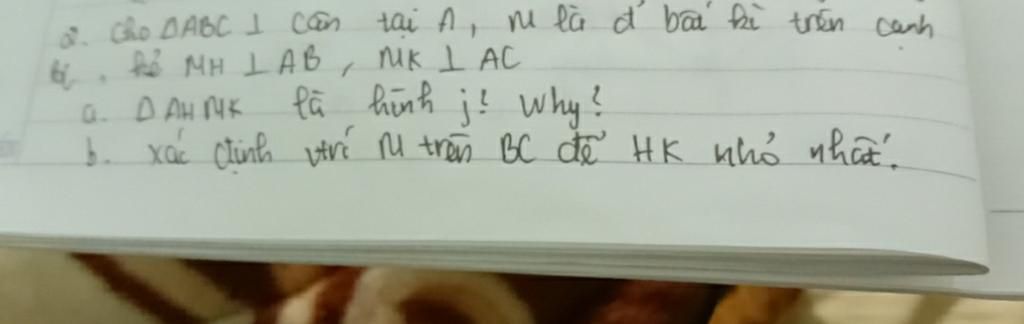 2. Cho ΔABC ⊥ cân tại A, M là đ' bất kì trên cạnh
BC, kẻ MH ⊥ AB, MK ⊥ AC
a. ΔAHMK là hình j? Why?
b. xác định vtrí M trên BC để HK nhỏ nhất.